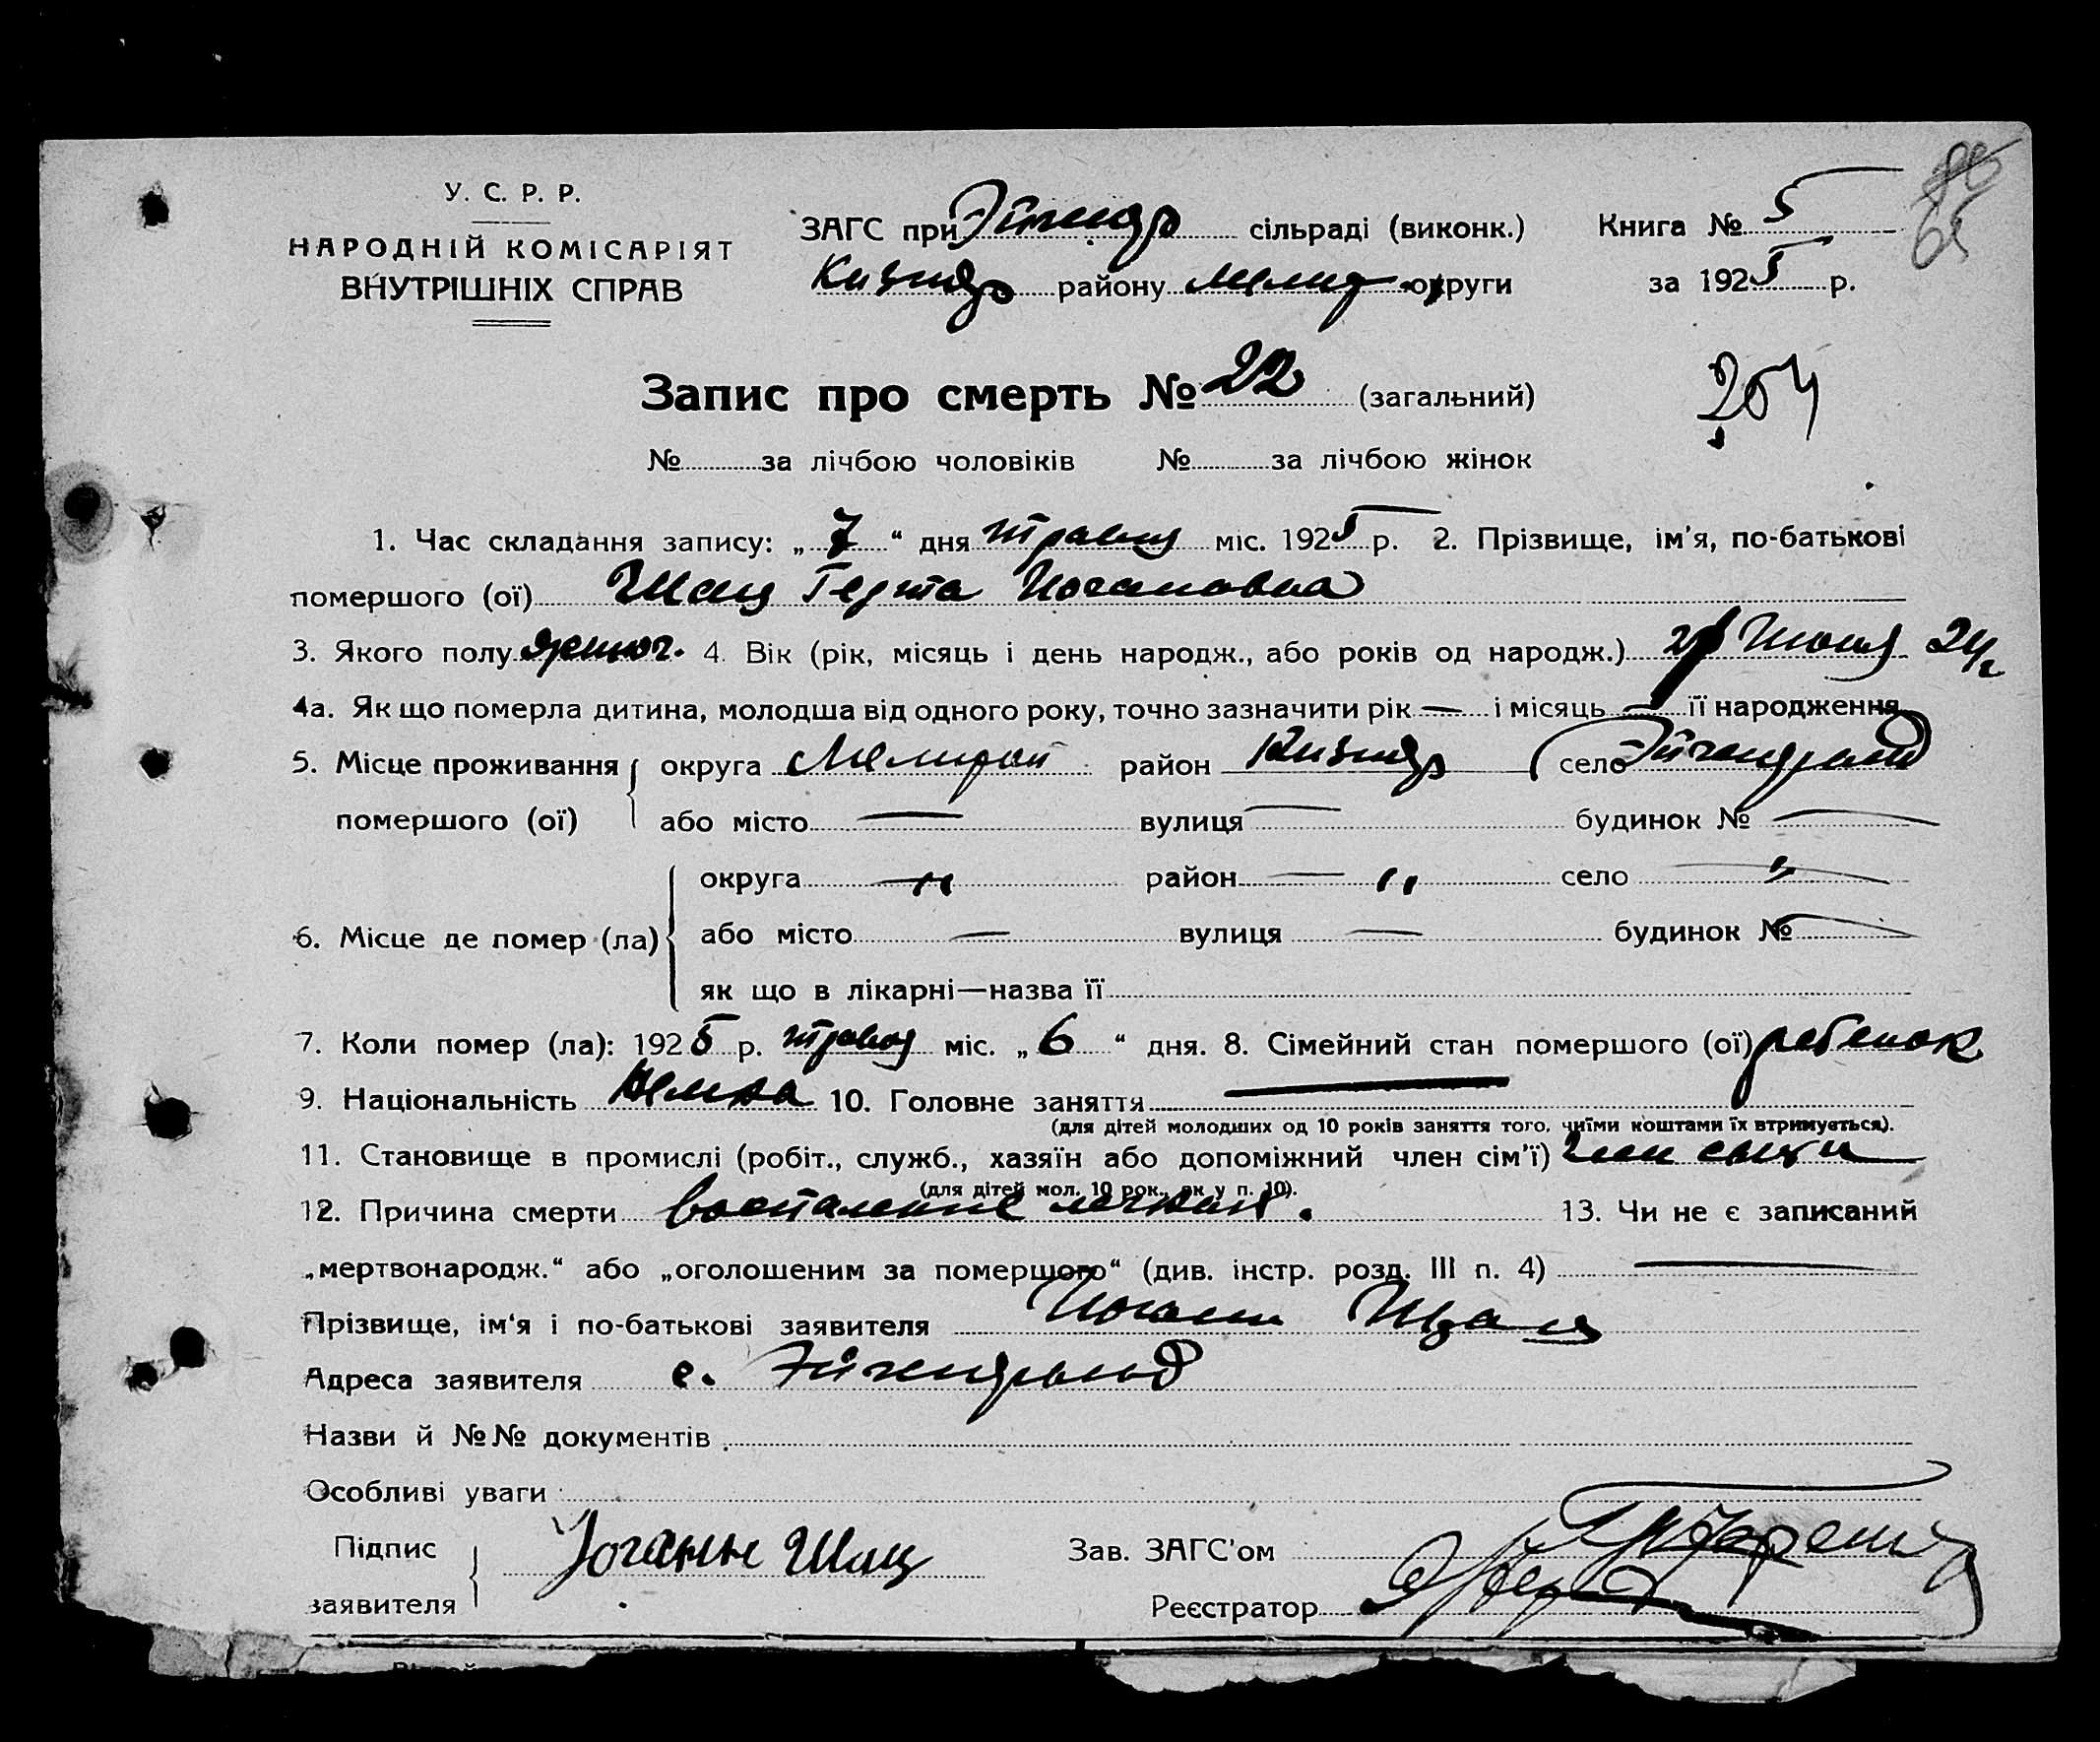 У. С. Р. Р.
НАРОДНІЙ КОМІСАРІЯТ
ВНУТРІШНІХ СПРАВ
ЗАГС при Эйгендр сільраді (виконк.)
району округи
Книга № 5
за 1925 р.
65
Запис про смерть № 22 (загальний)
204
№ за лічбою чоловіків № за лічбою жінок
1. Час складання запису: „ 7 “ дня травня міс. 1925 р. 2. Прізвище, ім'я, по-батькові
помершого (ої) Шац Герта Иогановна
3. Якого полу 4. Вік (рік, місяць і день народж., або років од народж.) Июня 24 г
4а. Як що померла дитина, молодша від одного року, точно зазначити рік — і місяць — її народження
5. Місце проживання округа район село Эйгендгальд
помершого (ої) або місто — вулиця — будинок № —
округа — " район — " село — "
6. Місце де помер (ла) або місто — вулиця — будинок № —
як що в лікарні—назва її
7. Коли помер (ла): 1925 р. травня міс. „ 6 “ дня. 8. Сімейний стан помершого (ої) ребенок
9. Національність Немка 10. Головне заняття —
(для дітей молодших од 10 років заняття того, чиїми коштами їх втримується).
11. Становище в промислі (робіт., служб., хазяїн або допоміжний член сім'ї) член
(для дітей мол. 10 рок., як у п. 10).
12. Причина смерти воспаление легких. 13. Чи не є записаний
„мертвонародж.“ або „оголошеним за помершого“ (див. інстр. розд. III п. 4) —
Прізвище, ім‘я і по-батькові заявителя Иоганн Шац
Адреса заявителя с. Эйгендгальд
Назви й №№ документів
Особливі уваги
Підпис
заявителя
Іоганн Шац
Зав. ЗАГС'ом
Реєстратор